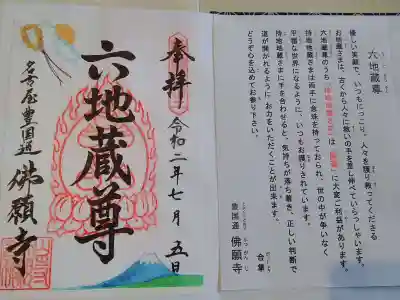 奉拝
令和二年七月五日
六地蔵尊
名古屋豊国通
佛願寺
六地蔵尊
優しい笑顔で、いつもにっこり、人々を護り救ってくださる
お地蔵さまは、古くから人々に救いの手を差し伸べていらっしゃいます。
六地蔵尊のうち「持地地蔵さま」は「
」に大変ご利益があります。
持地地蔵さまは両手に念珠を持っておられ、世の中が争いなく
平穏な世界になるように、いつもお護りされています。
持地地蔵さまに手を合わせると、気持ちが落ち着き、正しい判断で
道が開かれるように、お力をいただくことが出来ます。
どうぞ心を込めてお参り下さい。
合掌
豊国通 佛願寺